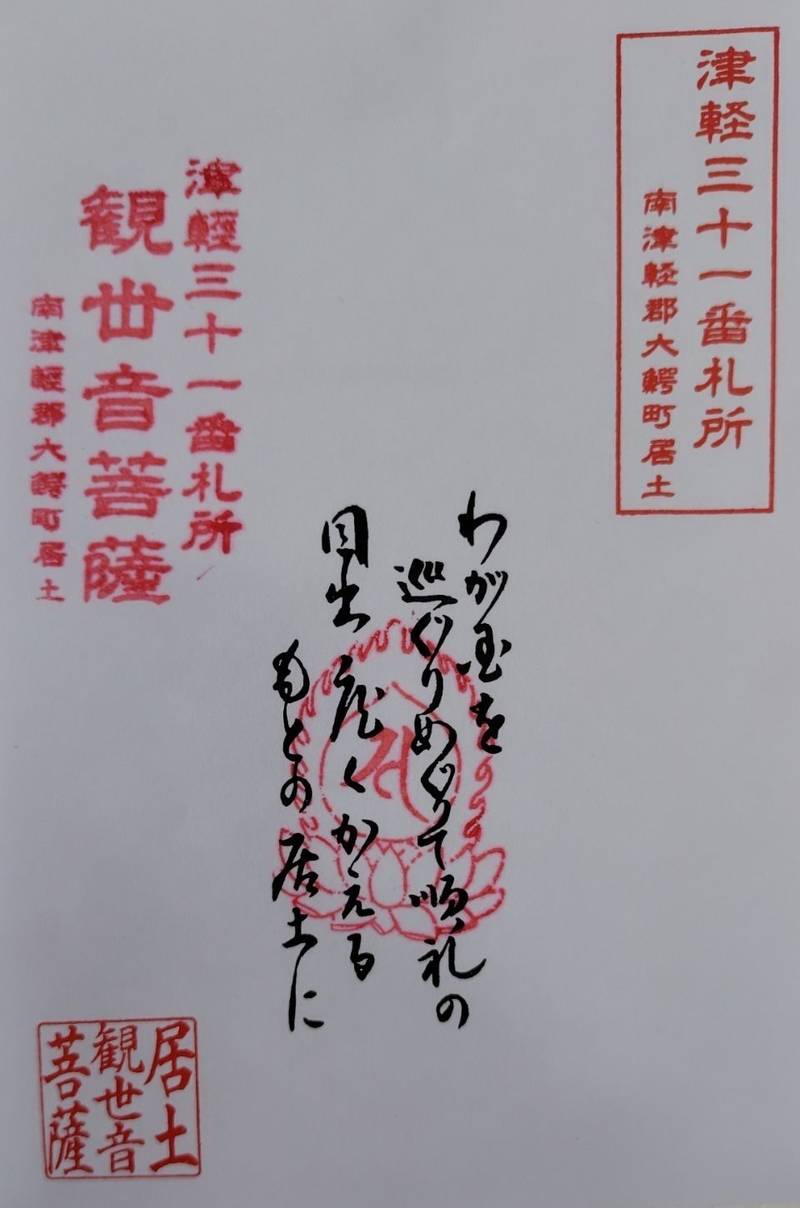 津軽三十一番札所
南津軽郡大鰐町居土
わが国を
巡ぐりめぐりて順礼の
目出度くかえる
もとの居土に
津軽三十一番札所
観世音菩薩
南津軽郡大鰐町居土
居土
観世音
菩薩